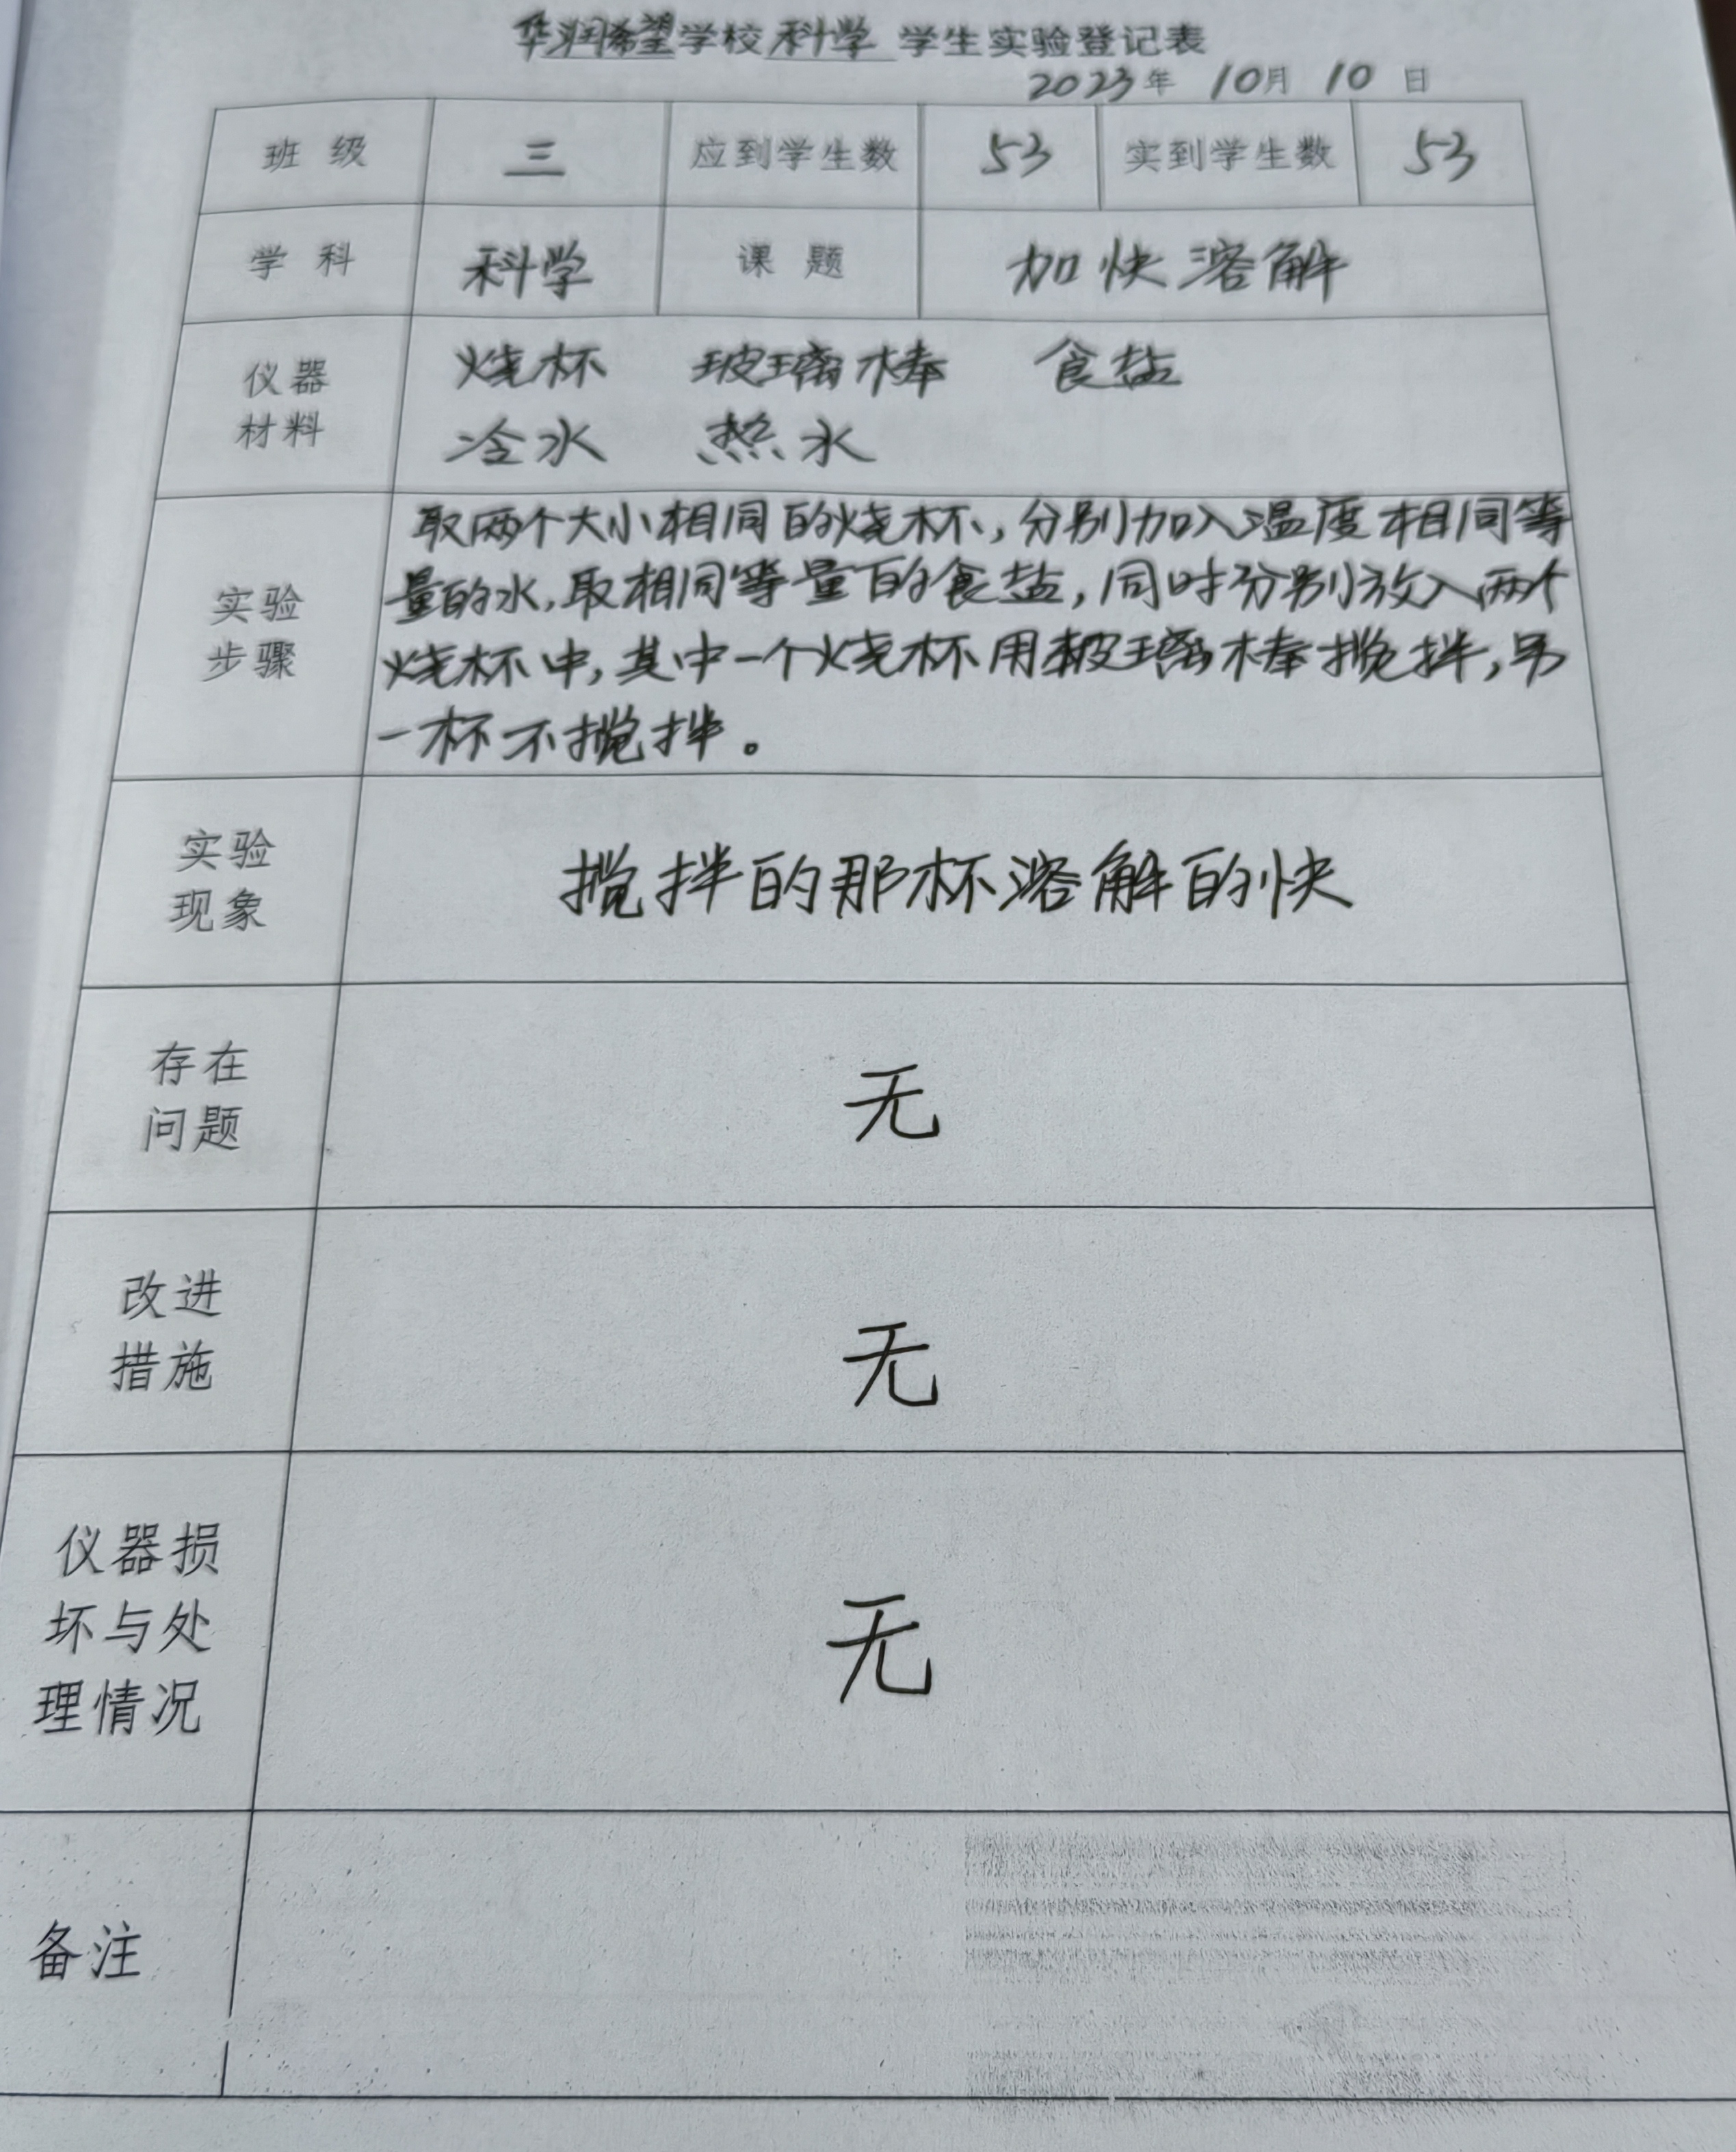 华润希望学校科学 学生实验登记表
2023年 10月 10日
班级 三 应到学生数 53 实到学生数 53
学科 科学 课题 加快溶解
仪器
材料
烧杯 玻璃棒 食盐
冷水 热水
实验
步骤
取两个大小相同的烧杯,分别加入温度相同等
量的水,取相同等量的食盐,同时分别放入两个
烧杯中,其中一个烧杯用玻璃棒搅拌,另
一杯不搅拌。
实验
现象
搅拌的那杯溶解的快
存在
问题
无
改进
措施
无
仪器损
坏与处
理情况
无
备注